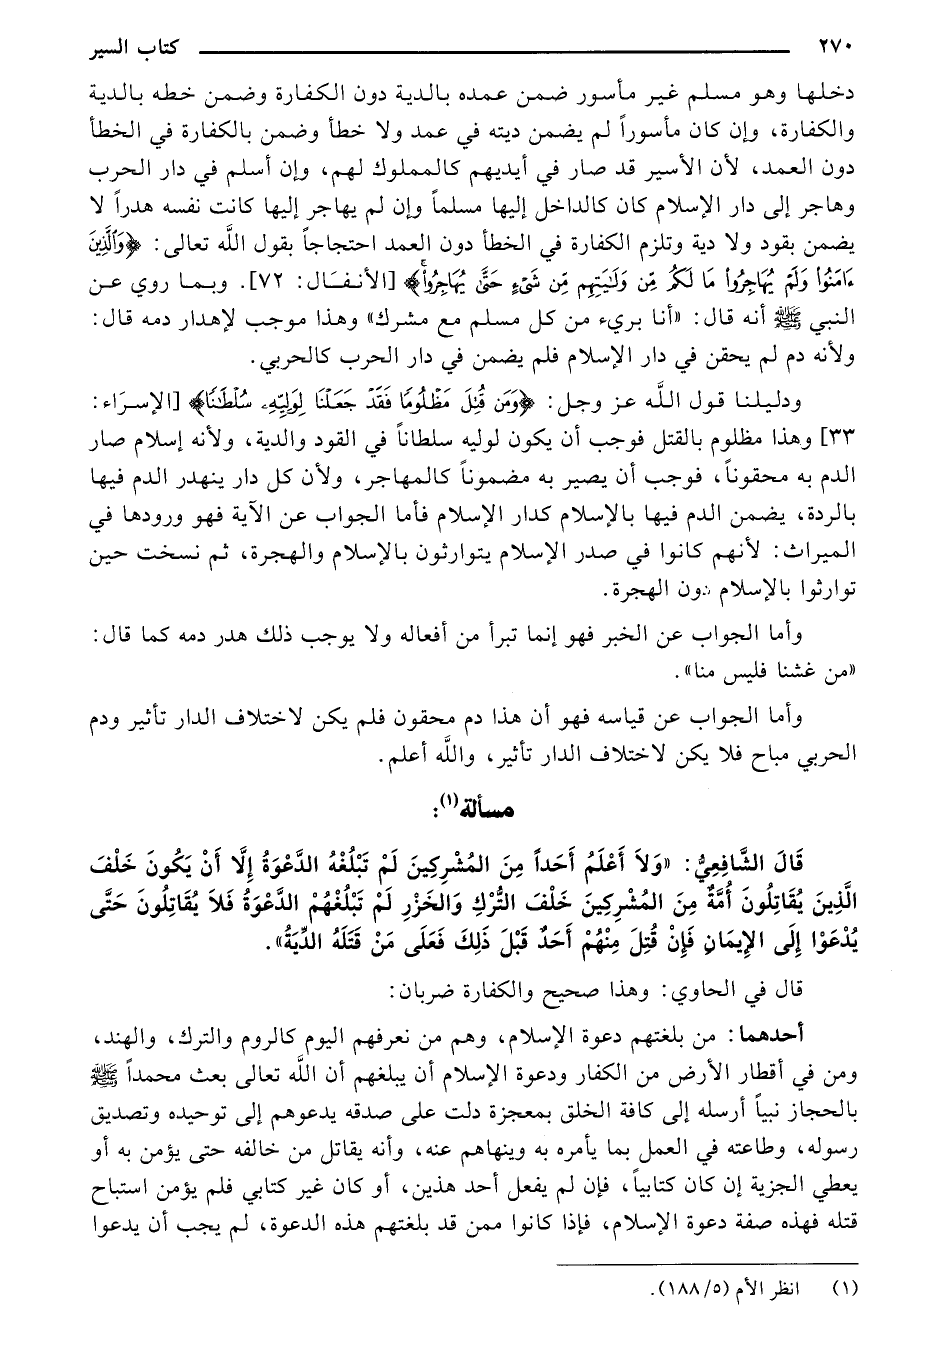 ٢٧٠ كتاب السير
دخلها وهو مسلم غير مأسور ضمن عمده بالدية دون الكفارة وضمن خطه بالدية
والكفارة، وإن كان مأسوراً لم يضمن ديته في عمد ولا خطأ وضمن بالكفارة في الخطأ
دون العمد، لأن الأسير قد صار في أيديهم كالمملوك لهم، وإن أسلم في دار الحرب
وهاجر إلى دار الإسلام كان كالداخل إليها مسلماً وإن لم يهاجر إليها كانت نفسه هدراً لا
يضمن بقود ولا دية وتلزم الكفارة في الخطأ دون العمد احتجاجاً بقول الله تعالى: ﴿وَالَّذِينَ
ءَامَنُوا وَلَمْ يُهَاجِرُوا مَا لَكُم مِّن وَلَٰيَتِهِم مِّن شَيْءٍ حَتَّىٰ يُهَاجِرُوا﴾ [الأنفَال: ٧٢]. وبما روي عن
النبي ﷺ أنه قال: «أنا بريء من كل مسلم مع مشرك» وهذا موجب لإهدار دمه قال:
ولأنه دم لم يحقن في دار الإسلام فلم يضمن في دار الحرب كالحربي.
ودليلنا قول الله عز وجل: ﴿وَمَن قُتِلَ مَظْلُومًا فَقَدْ جَعَلْنَا لِوَلِيِّهِۦ سُلْطَٰنًا﴾ [الإسرَاء:
٣٣] وهذا مظلوم بالقتل فوجب أن يكون لوليه سلطاناً في القود والدية، ولأنه إسلام صار
الدم به محقوناً، فوجب أن يصير به مضموناً كالمهاجر، ولأن كل دار ينهدر الدم فيها
بالردة، يضمن الدم فيها بالإسلام كدار الإسلام فأما الجواب عن الآية فهو ورودها في
الميراث: لأنهم كانوا في صدر الإسلام يتوارثون بالإسلام والهجرة، ثم نسخت حين
توارثوا بالإسلام دون الهجرة.
وأما الجواب عن الخبر فهو إنما تبرأ من أفعاله ولا يوجب ذلك هدر دمه كما قال:
«من غشنا فليس منا».
وأما الجواب عن قياسه فهو أن هذا دم محقون فلم يكن لاختلاف الدار تأثير ودم
الحربي مباح فلا يكن لاختلاف الدار تأثير، والله أعلم.
مسألة(١):
قَالَ الشَّافِعِيُّ: «وَلاَ أَعْلَمُ أَحَداً مِنَ المُشْرِكِينَ لَمْ تَبْلُغْهُ الدَّعْوَةُ إِلَّا أَنْ يَكُونَ خَلْفَ
الَّذِينَ يُقَاتِلُونَ أُمَّةٌ مِنَ المُشْرِكِينَ خَلْفَ التُّرْكِ وَالخَزْرِ لَمْ تَبْلُغْهُمْ الدَّعْوَةُ فَلاَ يُقَاتِلُونَ حَتَّى
يُدْعَوْا إِلَى الإِيمَانِ فَإِنْ قُتِلَ مِنْهُمْ أَحَدٌ قَبْلَ ذَلِكَ فَعَلَى مَنْ قَتَلَهُ الدِّيَةُ».
قال في الحاوي: وهذا صحيح والكفارة ضربان:
أحدهما: من بلغتهم دعوة الإسلام، وهم من نعرفهم اليوم كالروم والترك، والهند،
ومن في أقطار الأرض من الكفار ودعوة الإسلام أن يبلغهم أن الله تعالى بعث محمداً ﷺ
بالحجاز نبياً أرسله إلى كافة الخلق بمعجزة دلت على صدقه يدعوهم إلى توحيده وتصديق
رسوله، وطاعته في العمل بما يأمره به وينهاهم عنه، وأنه يقاتل من خالفه حتى يؤمن به أو
يعطي الجزية إن كان كتابياً، فإن لم يفعل أحد هذين، أو كان غير كتابي فلم يؤمن استباح
قتله فهذه صفة دعوة الإسلام، فإذا كانوا ممن قد بلغتهم هذه الدعوة، لم يجب أن يدعوا
(١) انظر الأم (١٨٨/٥).